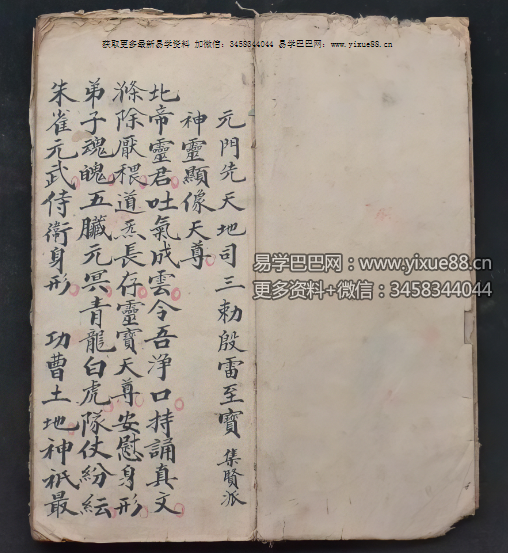 获取更多最新易学资料 加微信：3458344044 易学巴巴网：www.yixue88.cn
元門先天地司三勅殷雷至寶 集賢派
神靈顯像天尊
北帝靈君吐氣成雲令吾淨口持誦真文
滌除厭穢道炁長存靈寶天尊安慰身形
弟子魂魄五臟元冥青龍白虎隊仗紛紜
朱雀元武侍衛身形 功曹土地神祇最
易学巴巴网：www.yixue88.cn
更多资料+微信：3458344044